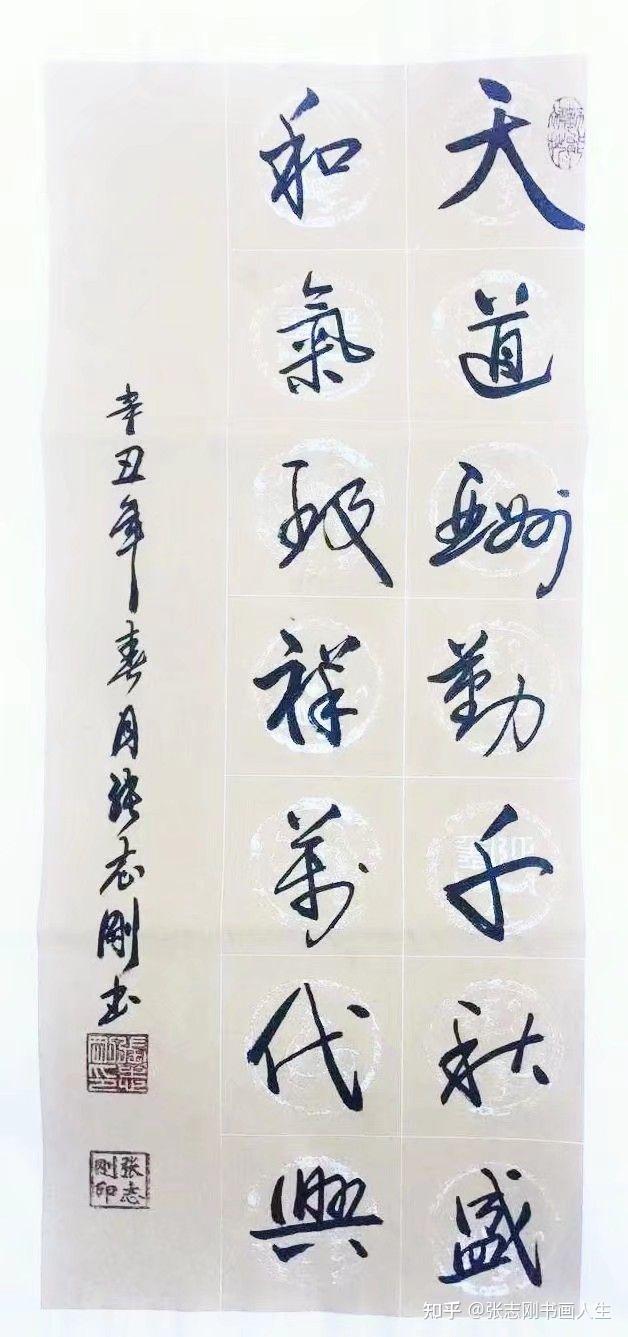 天道酬勤千秋盛
和氣致祥萬代興
辛丑年春月張志剛書
张志刚印
知乎 @张志刚书画人生